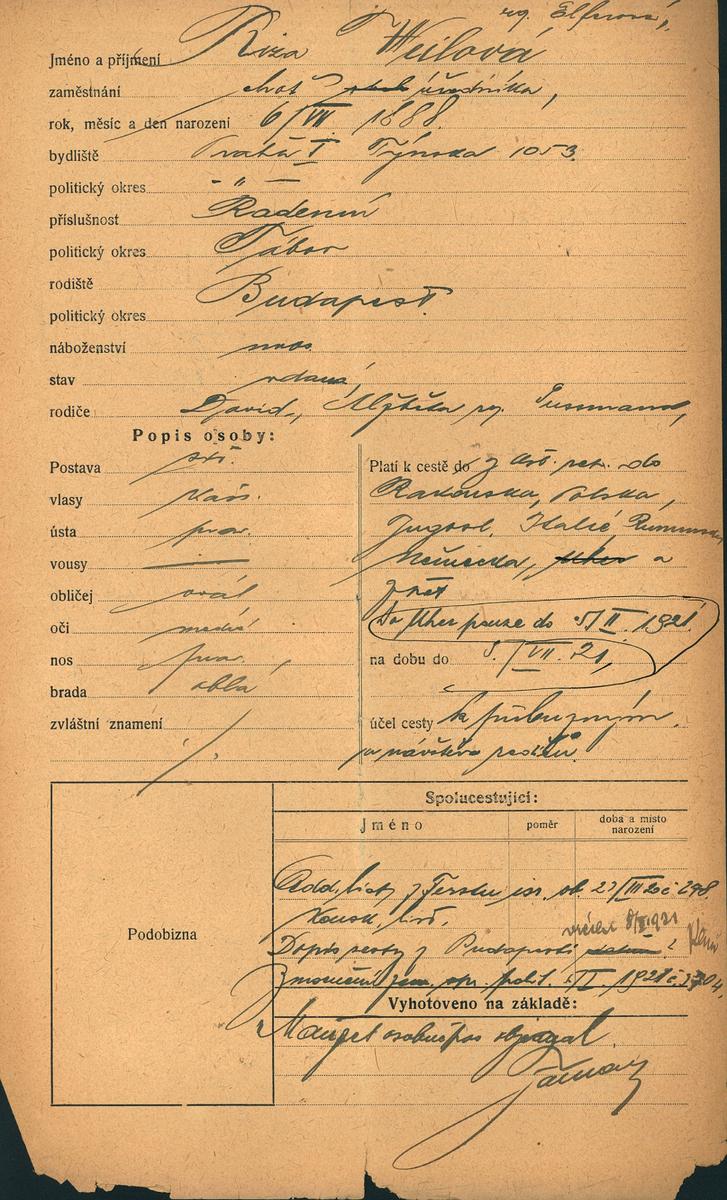 roz. Elferová,
Jméno a příjmení Róza Weilová
zaměstnání choť úředníka,
rok, měsíc a den narození 6/VII 1888.
bydliště Praha I Týnská 1053.
politický okres - " -
příslušnost Radenín
politický okres Tábor
rodiště Budapest
politický okres
náboženství
stav vdaná,
rodiče David,
Popis osoby:
Postava stř.
vlasy
ústa prav.
vousy —
obličej ovál
oči modré
nos prav.
brada oblá
zvláštní znamení
./.
Platí k cestě do do
Rakouska, Polska,
Jugosl. Italie Rumunska
Německa, Uher a
zpět
Do Uher pouze do 5/II. 1921.
na dobu do 5./VII. 21,
účel cesty k příbuzným
a návštěva rodičů.
Spolucestující:
Jméno
poměr
doba a místo narození
Podobizna
Odd. list z isr. ob. 27/III 20 č 298.
vrácen 1921
Dopis sestry z Budapešti
Zmocnění zem. spr. polit. II. 1921 č.
Vyhotoveno na základě:
Manžel osobně pas